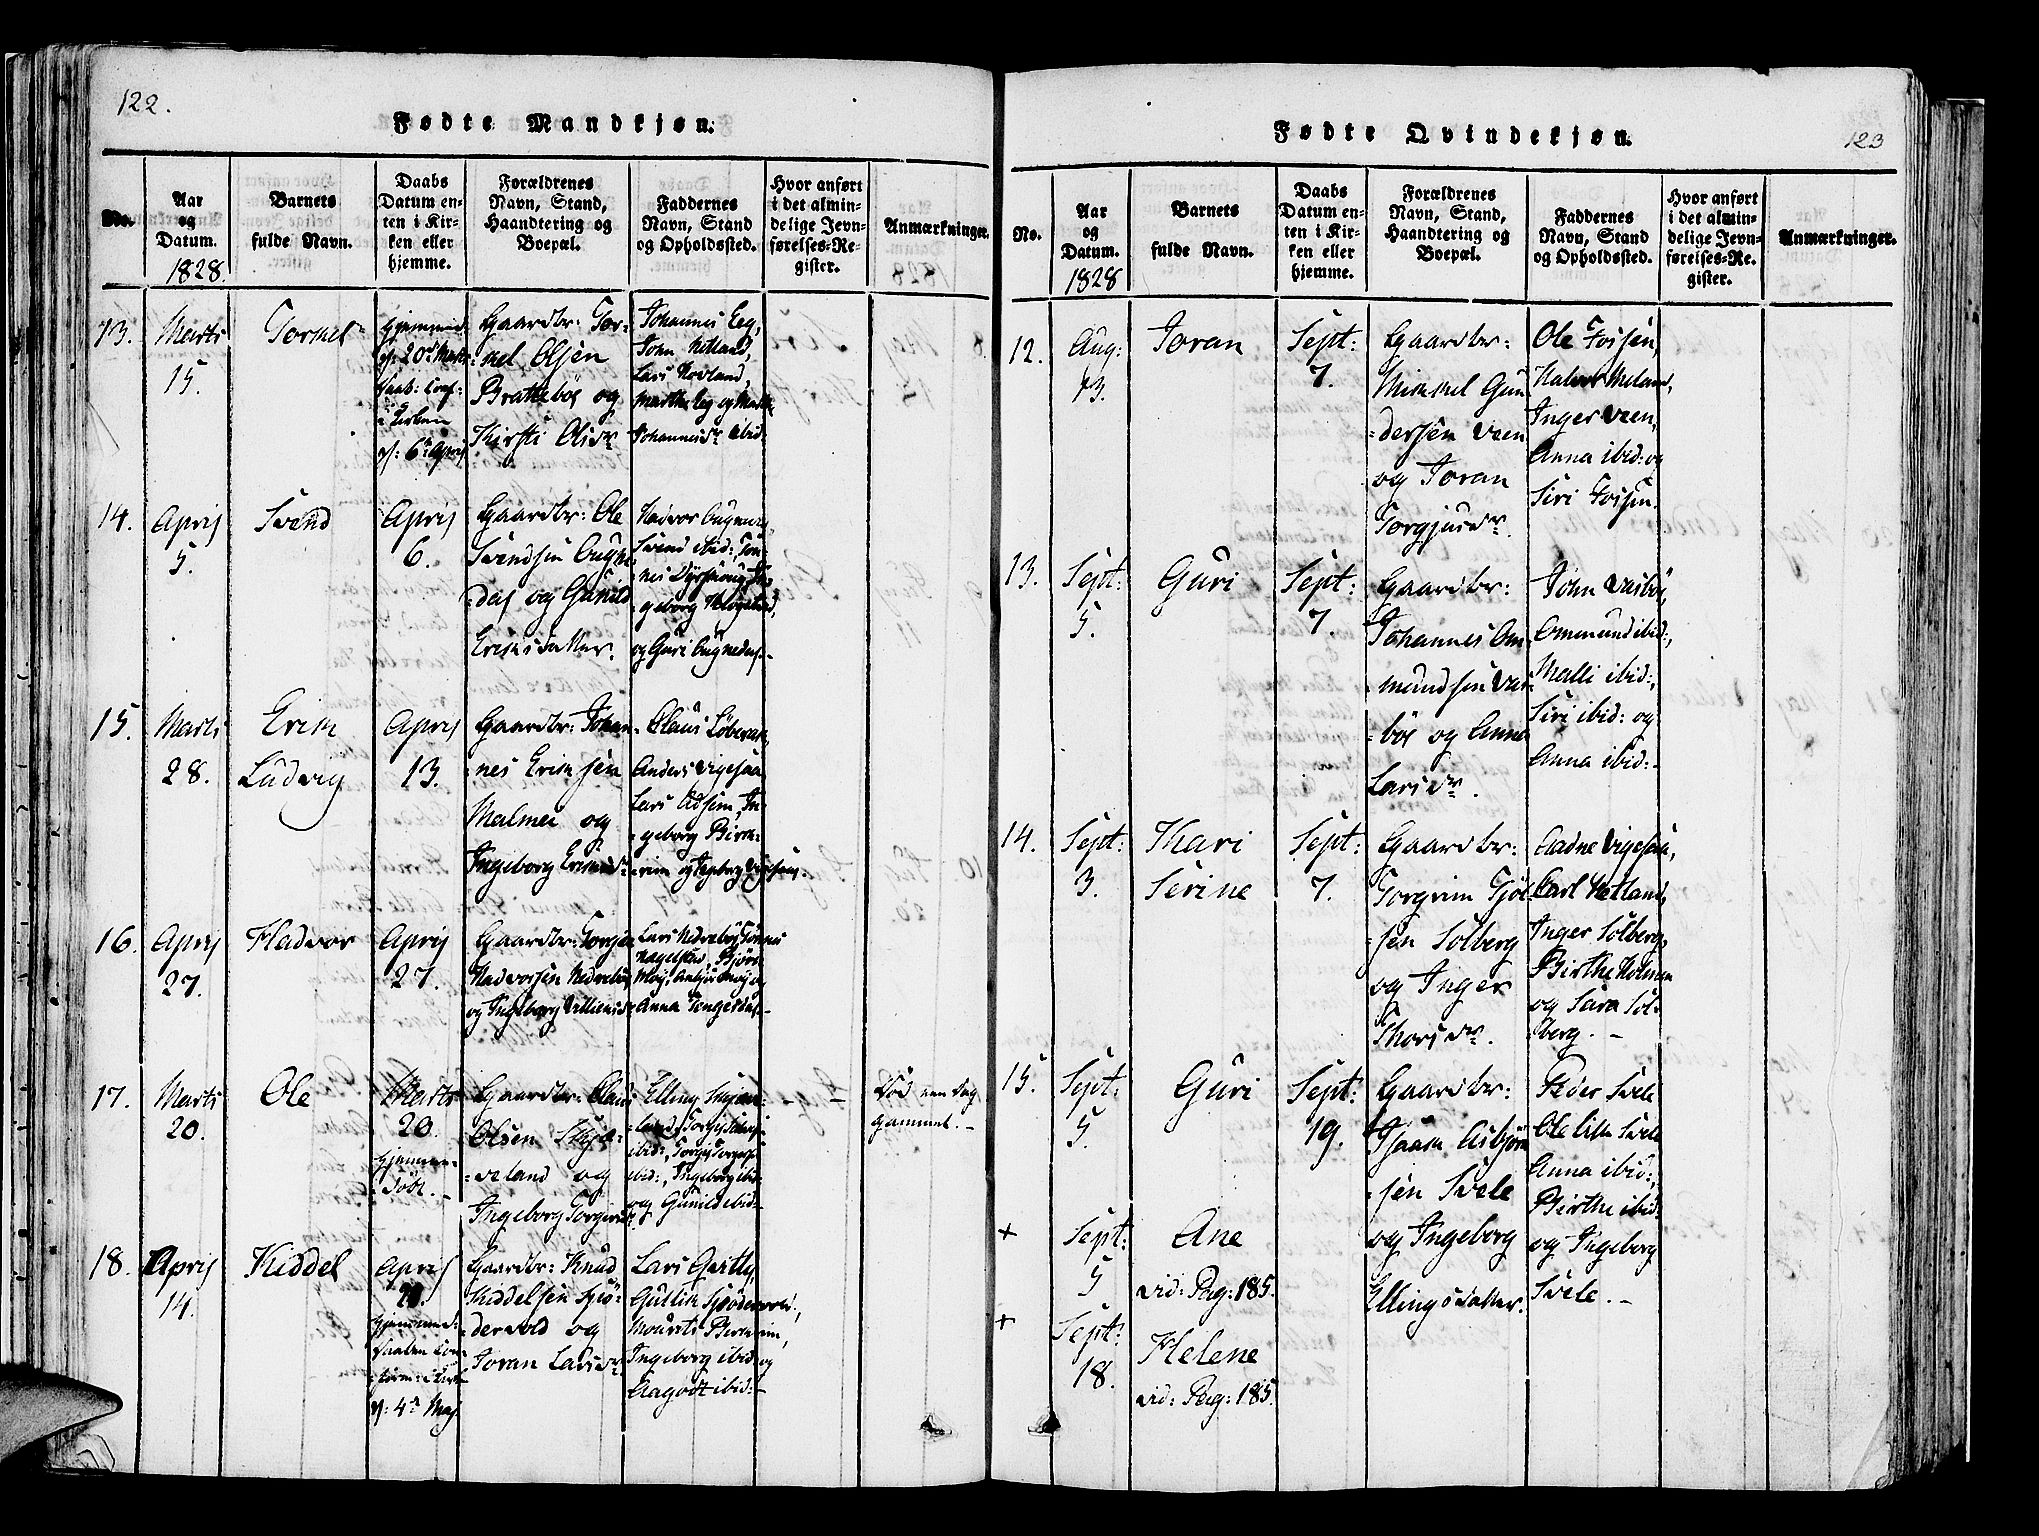 122.
Fødte Mandkjøn.
No.
Aar
og
Datum.
1828.
Barnets
fulde Navn.
Daabs
Datum en-
ten i Kir-
ken eller
hjemme.
Forældrenes
Navn, Stand,
Haandtering og
Boepæl.
Faddernes
Navn, Stand
og Opholdssted.
Hvor anført
i det almin-
delige Jevn-
førelses-Re-
gister.
Anmærkninger.
13.
Marts
15.
Tormel
Hjemmed:
d: 20de Marts
i Kirken
d: 6te April
Gaardbr: Tor-
mel Olsen
Brattebøe og
Kirsti Olsdr
Johannes Eeg,
John Netland,
Lars Hovland,
Marthe Eeg og
Johannesdr ibid:
14.
April
5.
Svend
April
6.
Gaardbr: Ole
Svendsen Eugne-
dal og Gunild
Eriksdatter.
Hadvor
Svend ibid: Tøn-
nes
geborg
og Guri
15.
Marts
28.
Erik
Ludvig
April
13.
Gaardbr: Johan-
nes Eriksen
Malmei og
Ingeborg Eriksdr
Claus
Anders Vigesaa
Lars
geborg Birk-
reim og Ingeborg Vigesaa
16.
April
27.
Hadvor
April
27.
Gaardbr: Torger
Hadvorsen Nedrebøe
og Ingeborg Villumsdr
Lars Nedrebø, Tønnes
Anna
17.
Marts
20.
Ole
Marts
20.
hjemme-
døbt.-
Gaardbr: Claus
Olsen Skjæ-
veland og
Ingeborg Torgersdr
Elling Skjæve-
land,
ibid:,
ibid:, Ingeborg ibid:
og Gunild ibid:-
Død een Dag
gammel.-
18.
April
14.
Kiddel
April
20.
hjemmed:
Daaben con-
firm: i Kirk:
d: 4de Maj.
Gaardbr: Knud
Kiddelsen Sjø-
dervold og
Joran Larsdr
Lars
Gullik Sjødervold,
Mourits Birkreim,
Ingeborg ibid: og
Aagodt ibid:-
Fødte Qvindekjøn.
123
No.
Aar
og
Datum.
1828
Barnets
fulde Navn.
Daabs
Datum en-
ten i Kir-
ken eller
hjemme.
Forældrenes
Navn, Stand,
Haandtering og
Boepæl.
Faddernes
Navn, Stand
og Opholdssted.
Hvor anført
i det almin-
delige Jevn-
førelses-Re-
gister.
Anmærkninger.
12.
Aug:
13.
Joran
Sept:
7.
Gaardbr:
Mikkel Gun-
dersen Veen
og Joran
Torgjusdr.
Ole Fossen,
Inger Veen,
Anna ibid: og
Siri Fossen.
13.
Sept:
5.
Guri
Sept:
7.
Gaardbr:
Johannes Om-
mundsen Vas-
bøe og Anna
Larsdr.
John Vasbøe,
Ommund ibid:,
Malli ibid:,
Siri ibid: og
Anna ibid:-
14.
Sept:
3.
Kari
Serine
Sept:
7.
Gaardbr:
Torgrim Tjøl-
sen Solberg
og Inger
Thorsdr.
Aadne Vigesaa,
Carl Hetland,
Inger Solberg,
Birthe
og Sara Sol-
berg. -
15.
Sept:
5
Guri
Sept:
19.
Gaardbr:
Isaak Asbjørn-
sen Svele
og Ingeborg
Ellingsdatter.
Peder Svele
Ole Lille Svele
Anna ibid:,
Birthe ibid:
og Ingeborg
Svele. -
+
Sept:
5
Ane
vid: Pag: 185.
+
Sept:
18.
Helene
vid: Pag: 185.